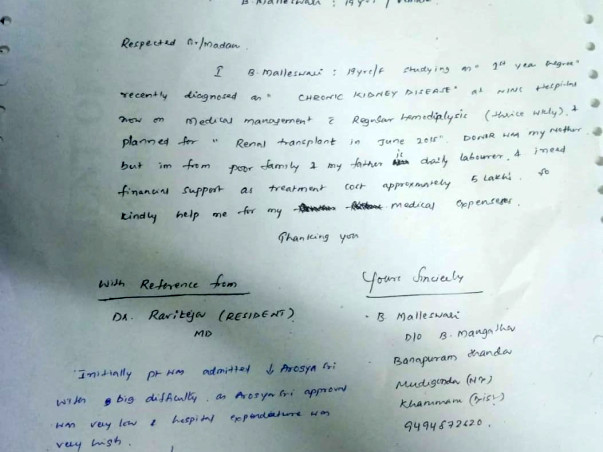 B. Malleswari : 19yrs/
Respected Sir/Madam
I B. Malleswari : 19yrs/f studying on "1st year Degree"
recently diagnosed as " CHRONIC KIDNEY DISEASE" at NIMS Hospital
now on medical management & Regular Hemodialysis (thrice wkly), &
planned for " Renal transplant in June 2015" Donor was my Mother
but im from poor family & my father is daily labourer, & ineed
financial support as treatment cost approximately 5 Lakhs. So
kindly help me for my medical expenses.
Thanking you
With Reference from
Dr. Raviteja (RESIDENT)
MD
Initially pt was admitted ↓ Arogya Sri
with big difficulty. as Arogya Sri approval
was very low & hospital expenditure was
very high.
Yours Sincerely
B Malleswari
D/o B. Mangatha
Banapuram thanda
Mudigonda
Khammam (Dist)
9494672620.